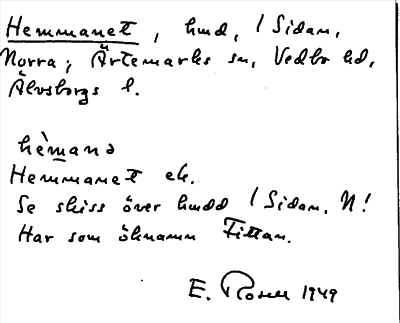 Hemmanet, hmd, / Sidan,
Norra; Ärtemarks sn, Vedbo hd,
Älvsborgs l.
hèmanə
Hemmanet ek.
Se skiss över hmdd / Sidan, N!
Har som öknamn Fittan.
E. Rosell 1949